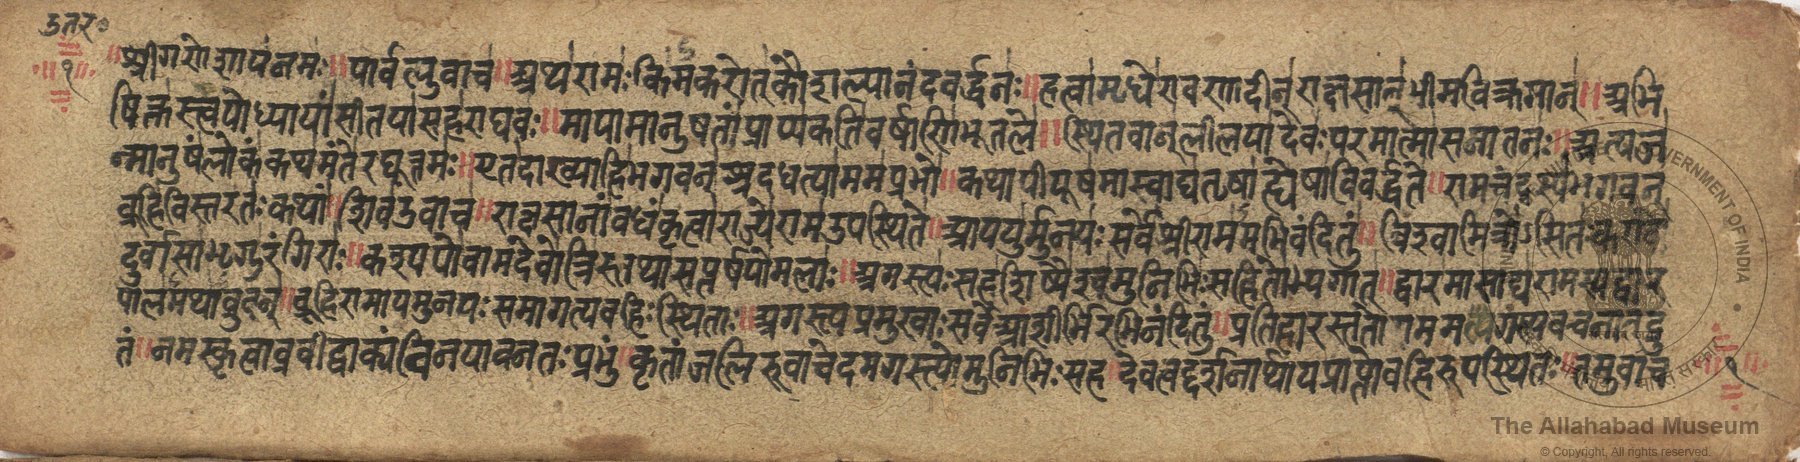 उतर०
१
॥श्रीगणेशायनमः॥पार्वत्युवाच॥अथरामःकिमकरोत्कौशल्यानंदवर्द्धनः॥हत्वामृधेरावणादीन्राक्षसान्भीमविक्रमान्॥अभि
षिक्तस्त्वयोध्यायांसीतयासहराघवः॥मायामानुषतांप्राप्यकतिवर्षाणिभूतले॥स्थितवान्लीलयादेवःपरमात्मासनातनः॥अत्यज
न्मानुषंलोकंकथमंतेरघूत्तमः॥एतदाख्याहिभगवन्श्रद्दधत्याममप्रभो॥कथापीयूषमास्वाद्यतृषाह्येषाविवर्द्धते॥रामचंद्रस्यभगवन्
ब्रूहिविस्तरतःकथां॥शिवउवाच॥राक्षसानांवधंकृत्वाराज्येरामउपस्थिते॥आययुर्मुनयःसर्वेश्रीराममभिवंदितुं॥विश्वामित्रोऽसितःकण्वो
दुर्वासाभृगुरंगिराः॥कश्यपोवामदेवोत्रिस्तथासप्तर्षयोमलाः॥अगस्त्यःसहशिष्यैश्चमुनिभिःसहितोभ्यगात्॥द्वारमासाद्यरामस्यद्वार
पालमथाब्रुवन्॥ब्रूहिरामायमुनयःसमागत्यवहिःस्थिताः॥अगस्त्यप्रमुखाःसर्वेआशीर्भिरभिनंदितुं॥प्रतिहारस्ततोराममगस्त्यवचनाद्द्रु
तं॥नमस्कृत्वाब्रवीद्वाक्यंविनयावनतःप्रभुं॥कृतांजलिरुवाचेदमगस्त्योमुनिभिःसह॥देवत्वद्दर्शनार्थायप्राप्तोवहिरुपस्थितः॥तमुवाच
१
GOVERNMENT OF INDIA
The Allahabad Museum
© Copyright, All rights reserved.